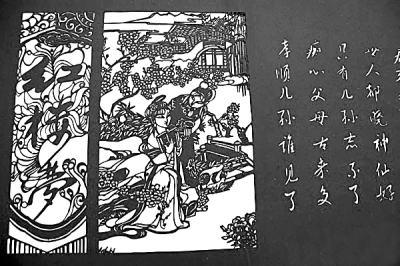 红楼梦
世人都晓神仙好
只有儿孙忘不了
痴心父母古来多
孝顺儿孙谁见了